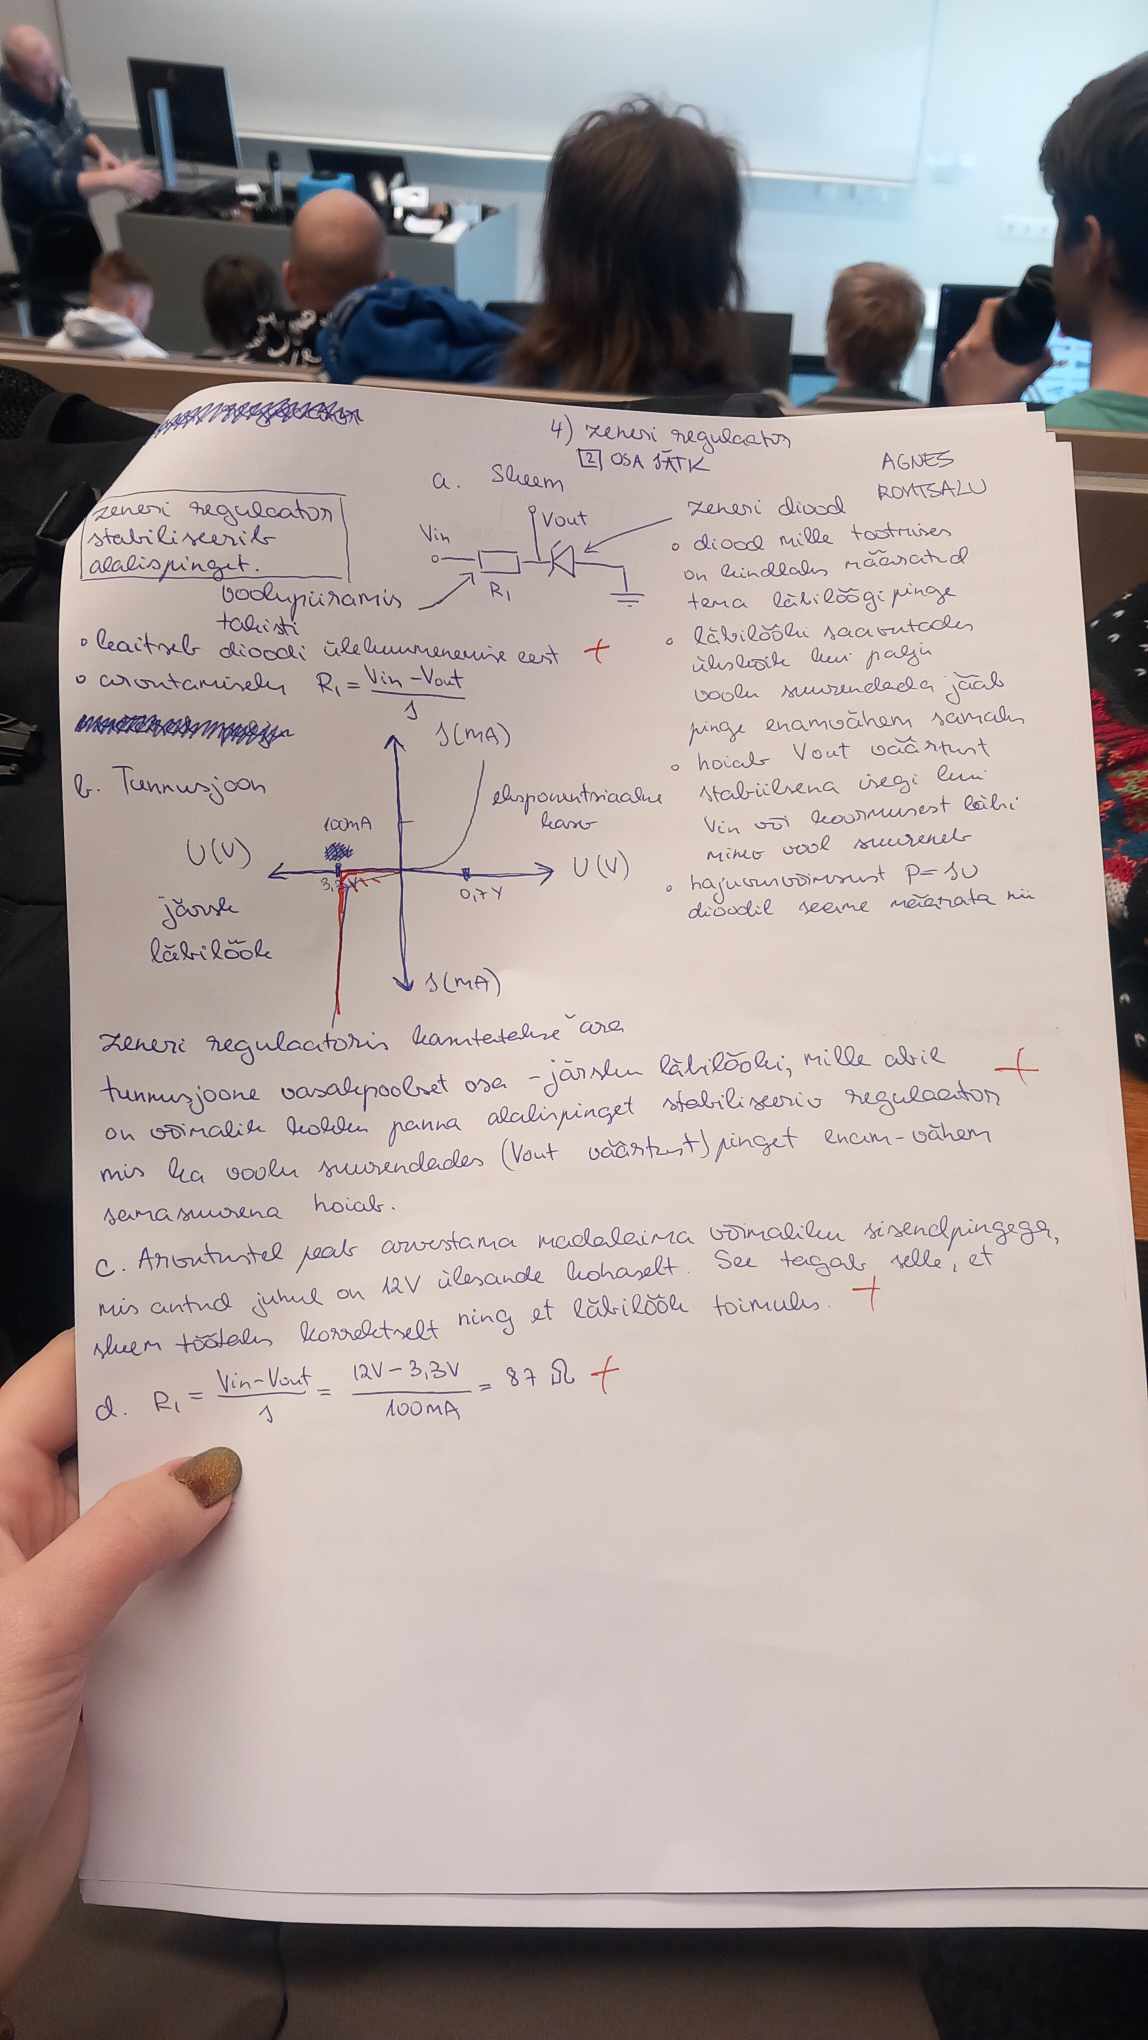 4) zeneri regulaator
2 OSA JÄTK
AGNES
ROMTSALU
a. Skeem
zeneri regulaator
stabiliseerib
alalispinget.
Vin
Vout
R₁
voolupiiramis
takisti
• kaitseb dioodi ülekuumenemise eest +
• arvutamiseks R₁ = Vin-Vout / J
zeneri diood
• diood mille tootmises
on kindlaks määratud
tema läbilöögipinge
• läbilööki saavutades
ükskõik kui palju
voolu suurendada jääb
pinge enamvähem samaks
• hoiab Vout väärtust
stabiilsena isegi kui
Vin või koormusest läbi
minev vool suureneb
• hajuvusvõimsust P=JU
dioodil seeme määrata nii
b. Tunnusjoon
J(MA)
100mA
eksponentsiaalne
kasv
U(V)
U(V)
0,7V
järsk
läbilöök
J(MA)
Zeneri regulaatoris kasutatakse ära
tunnusjoone vasakpoolset osa - järsku läbilööki, mille abil +
on võimalik kokku panna alalispinget stabiliseeriv regulaator
mis ka voolu suurendades (Vout väärtust) pinget enam-vähem
samasuurena hoiab.
c. Arvutustel peab arvestama madalaima võimaliku sisendpingega,
mis antud juhul on 12V ülesande kohaselt. See tagab selle, et
skeem töötaks korrektselt ning et läbilöök toimuks. +
d. R₁ = Vin-Vout / J = 12V-3,3V / 100MA = 87 Ω +